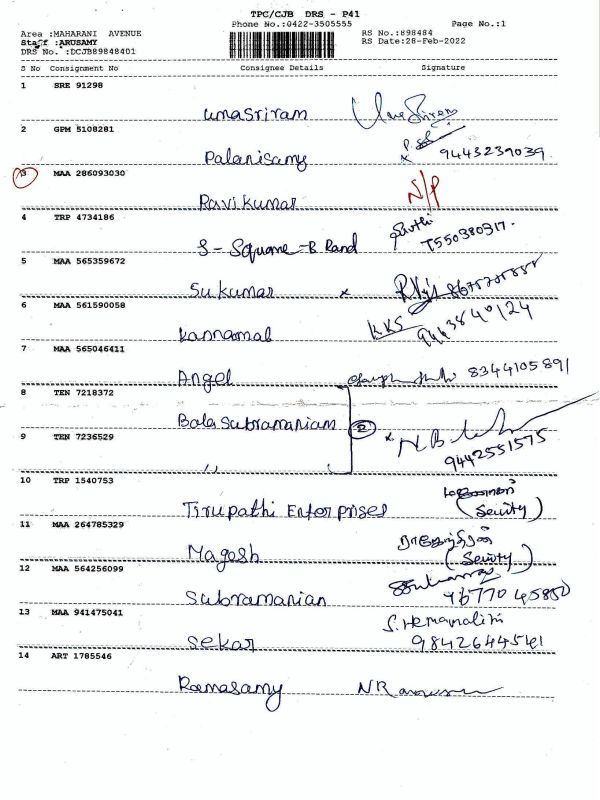 TPC/CJB DRS - P41
Phone No.:0422-3505555 Page No.:1
Area :MAHARANI AVENUE RS No.:898484
Staff :ARUSAMY RS Date:28-Feb-2022
DRS No. :DCJB89848401
S No Consignment No Consignee Details Signature
1 SRE 91298
Umasriram Uma Sriram
2 GPM 5108281
Palanisamy 9443239039
3 MAA 286093030
Ravi kumar N/P
4 TRP 4734186
S - Square - B Rand
5 MAA 565359672
Sukumar x
6 MAA 561590058
Kannamal KKS 9443840124
7 MAA 565046411
Angel 8344105891
8 TEN 7218372
Bala Subramanian 2
9 TEN 7236529
,, x 9442551575
10 TRP 1540753
Tirupathi Enterprises (Seciity)
11 MAA 264785329
Magesh (Seciity)
12 MAA 564256099
Subramanian
13 MAA 941475041
Sekar S. Hemamalini
14 ART 1785546
Ramasamy